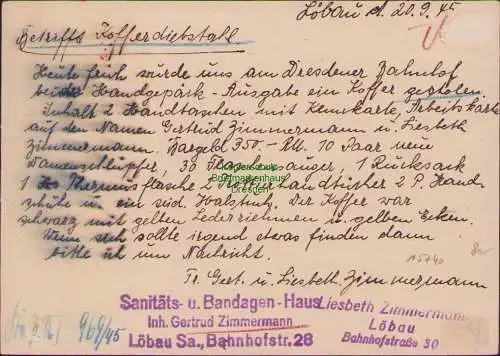 Löbau d. 20.9.45
Betrifft Kofferdiebstahl
Heute früh wurde uns am Dresdener Bahnhof
bei der Handgepäck-Ausgabe ein Koffer gestolen.
Inhalt 2 Handtaschen mit Kennkarte, Arbeitskarte
auf den Namen Gertrud Zimmermann u. Liesbeth
Zimmermann. Bargeld 350.- RM. 10 Paar neue
Damenschlüpfer, 30 1 Rucksack
1 Thermosflasche 2 2 P. Hand-
schuhe u. ein Halstuch, Der Koffer war
schwarz mit gelben Lederriehmen u. gelben Ecken.
Wenn sich sollte irgend etwas finden dann
bitte ich um Nachricht.
Gert. u. Liesbeth Zimmermann
Sanitäts- u. Bandagen-Haus
Inh. Gertrud Zimmermann
Löbau Sa., Bahnhofstr. 28
Liesbeth Zimmermann
Löbau
Bahnhofstraße 30
969/45